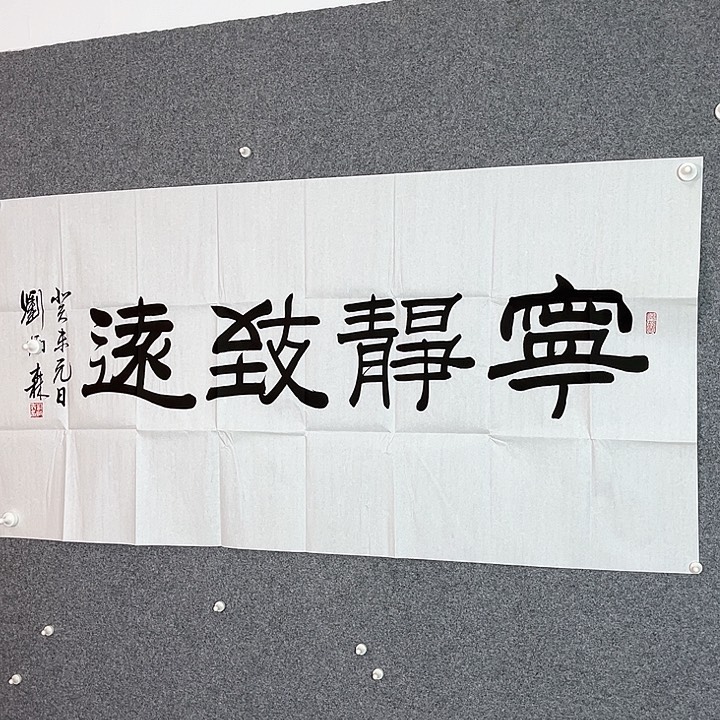 寧靜致遠
癸未元日
劉 森